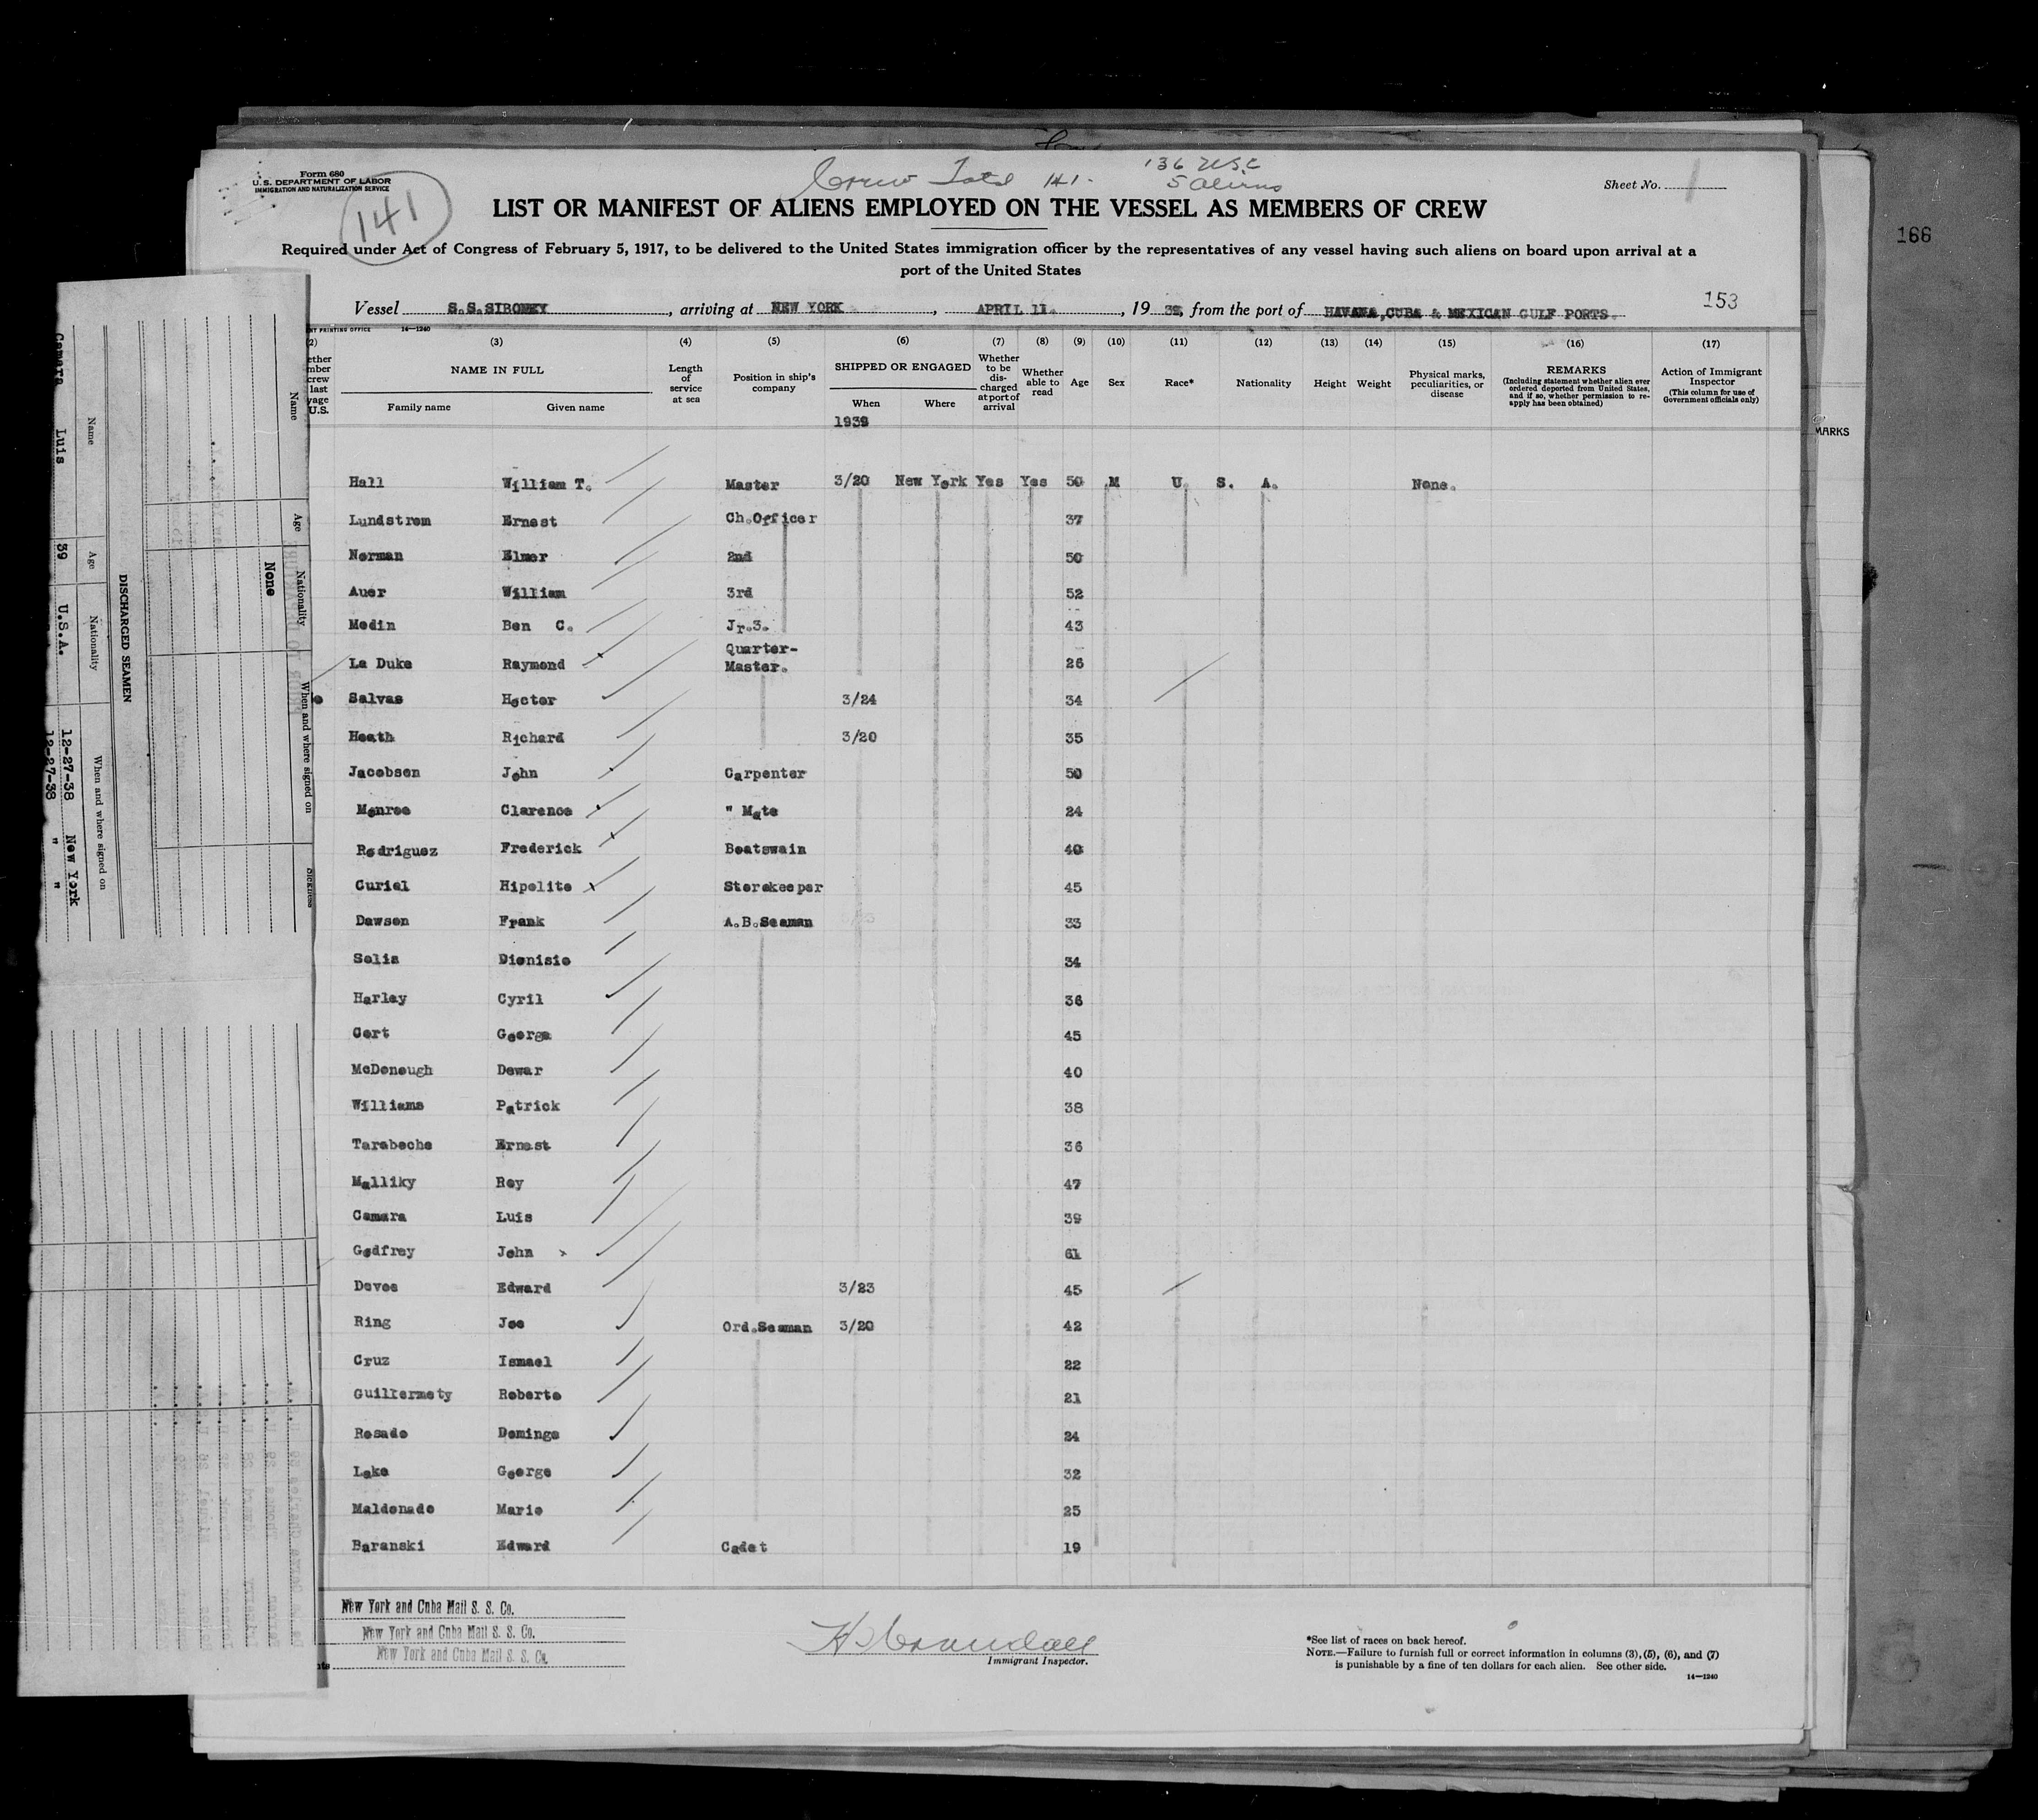 Form 680
U.S. DEPARTMENT OF LABOR
IMMIGRATION AND NATURALIZATION SERVICE
141
Crew Total 141.
136 USC
5 Aliens
Sheet No. 1
LIST OR MANIFEST OF ALIENS EMPLOYED ON THE VESSEL AS MEMBERS OF CREW
Required under Act of Congress of February 5, 1917, to be delivered to the United States immigration officer by the representatives of any vessel having such aliens on board upon arrival at a
port of the United States
166
Vessel S.S.SIBONEY, arriving at NEW YORK, APRIL 11., 1939, from the port of HAVANA,CUBA & MEXICAN GULF PORTS.
153
NT PRINTING OFFICE 14—1240
(2) (3) (4) (5) (6) (7) (8) (9) (10) (11) (12) (13) (14) (15) (16) (17)
ether
mber
crew
last
yage
U.S.
NAME IN FULL
Family name Given name
Length of service at sea
Position in ship's company
SHIPPED OR ENGAGED
When Where
Whether to be discharged at port of arrival
Whether able to read
Age
Sex
Race*
Nationality
Height
Weight
Physical marks, peculiarities, or disease
REMARKS
(Including statement whether alien ever ordered deported from United States, and if so, whether permission to re-apply has been obtained)
Action of Immigrant Inspector
(This column for use of Government officials only)
MARKS
1939
Hall William T. Master 3/20 New York Yes Yes 50 M U. S. A. None.
Lundstrom Ernest Ch.Officer 37
Norman Elmer 2nd 50
Auer William 3rd 52
Medin Ben C. Jr.3. 43
La Duke Raymond Quarter-Master. 26
Salvas Hector 3/24 34
Heath Richard 3/20 35
Jacobsen John Carpenter 50
Monroe Clarence " Mate 24
Rodriguez Frederick Boatswain 40
Curial Hipolito Storekeeper 45
Dawson Frank A.B.Seaman 33
Solis Dionisio 34
Harley Cyril 36
Cort George 45
McDonough Dewar 40
Williams Patrick 38
Tarabocha Ernest 36
Malliky Roy 47
Camara Luis 39
Godfrey John 61
Devoe Edward 3/23 45
Ring Joe Ord.Seaman 3/20 42
Cruz Ismael 22
Guillermety Roberto 21
Rosado Domingo 24
Lake George 32
Maldonado Mario 25
Baranski Edward Cadet 19
New York and Cuba Mail S. S. Co.
New York and Cuba Mail S. S. Co.
New York and Cuba Mail S. S. Co.
Immigrant Inspector.
*See list of races on back hereof.
NOTE.—Failure to furnish full or correct information in columns (3), (5), (6), and (7)
is punishable by a fine of ten dollars for each alien. See other side.
14—1240
Name Age Nationality When and where signed on Sickness
None
DISCHARGED SEAMEN
Name Age Nationality When and where signed on
Luis 39 U.S.A. 12-27-38 New York
Camara
12-27-38 " "